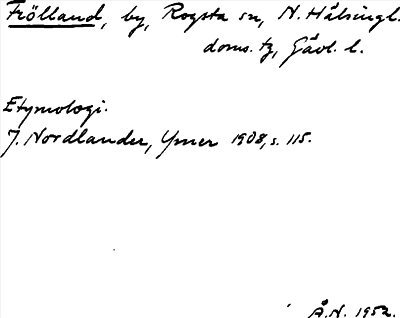 Frölland, by, Rogsta sn, N. Hälsingl.
doms. tg, Gävl. l.
Etymologi.
J. Nordlander, Ymer 1908, s. 115.
Å.N. 1952.